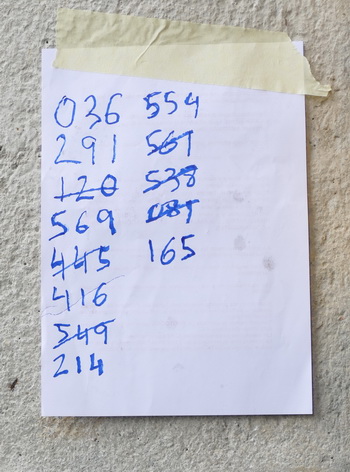 036
291
120
569
445
416
549
214
554
567
538
165